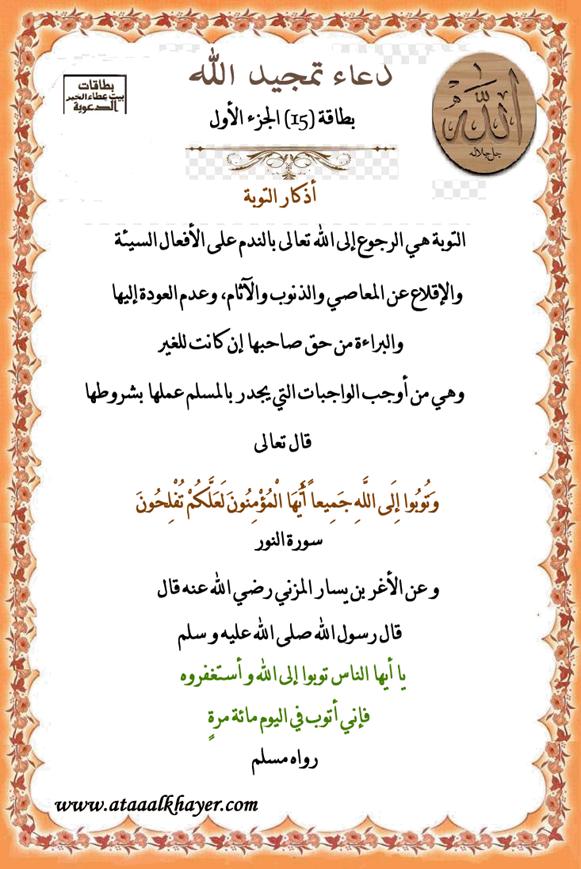 دعاء تمجيد الله
بطاقات
بيت عطاء الخير
الدعوية
الله
جل جلاله
بطاقة (15) الجزء الأول
أذكار التوبة
التوبة هي الرجوع إلى الله تعالى بالندم على الأفعال السيئة
والإقلاع عن المعاصي والذنوب والآثام، وعدم العودة إليها
والبراءة من حق صاحبها إن كانت للغير
وهي من أوجب الواجبات التي يجدر بالمسلم عملها بشروطها
قال تعالى
وَتُوبُوا إِلَى اللَّهِ جَمِيعاً أَيُّهَا الْمُؤْمِنُونَ لَعَلَّكُمْ تُفْلِحُونَ
سورة النور
وعن الأغر بن يسار المزني رضي الله عنه قال
قال رسول الله صلى الله عليه وسلم
يا أيها الناس توبوا إلى الله وأستغفروه
فإني أتوب في اليوم مائة مرةٍ
رواه مسلم
www.ataaalkhayer.com